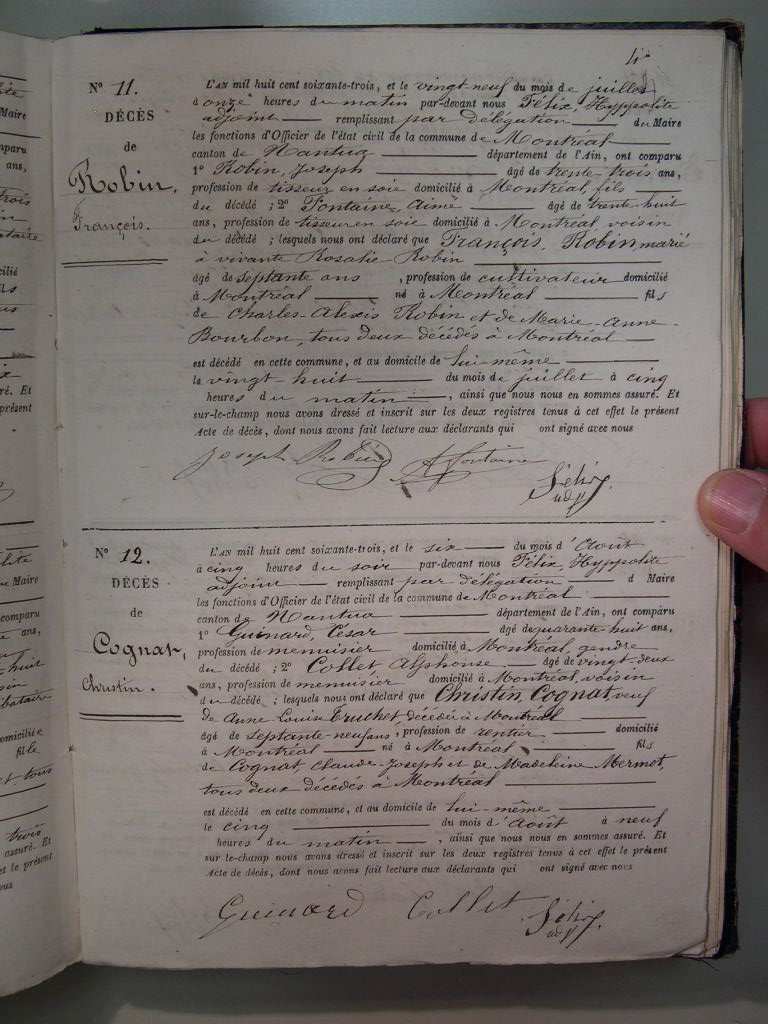 4e
No 11.
DÉCÈS
de
Robin,
François.
L'AN mil huit cent soixante-trois, et le vingt neuf du mois de juillet
à onze heures du matin par-devant nous Félix, Hyppolite
adjoint remplissant par délégation du Maire
les fonctions d'Officier de l'état civil de la commune de Montréal
canton de Nantua département de l'Ain, ont comparu
1o Robin, Joseph âgé de trente-trois ans,
profession de tisseur en soie domicilié à Montréal, fils
du décédé ; 2o Fontaine, Aimé âgé de trente-huit
ans, profession de tisseur en soie domicilié à Montréal, voisin
du décédé ; lesquels nous ont déclaré que François, Robin marié
à vivante Rosalie Robin
âgé de septante ans , profession de cultivateur domicilié
à Montréal né à Montréal fils
de Charles-Alexis Robin et de Marie-Anne
Bourbon, tous deux décédés à Montréal
est décédé en cette commune, et au domicile de lui-même
le vingt huit du mois de juillet à cinq
heures du matin , ainsi que nous nous en sommes assuré. Et
sur-le-champ nous avons dressé et inscrit sur les deux registres tenus à cet effet le présent
Acte de décès, dont nous avons fait lecture aux déclarants qui ont signé avec nous
Joseph Robin A fontaine
Félix
adjt
No 12.
DÉCÈS
de
Cognat,
Christin.
L'AN mil huit cent soixante-trois, et le six du mois d'Août
à cinq heures du soir par-devant nous Félix, Hyppolite
adjoint remplissant par délégation d Maire
les fonctions d'Officier de l'état civil de la commune de Montréal
canton de Nantua département de l'Ain, ont comparu
1o Guinard, César âgé de quarante-huit ans,
profession de menuisier domicilié à Montréal, gendre
du décédé ; 2o Collet Alphonse âgé de vingt-deux
ans, profession de menuisier domicilié à Montréal, voisin
du décédé ; lesquels nous ont déclaré que Christin, Cognat, veuf
de Anne Louise Truchet, décédée à Montréal
âgé de septante-neuf ans, profession de rentier domicilié
à Montréal né à Montréal fils
de Cognat, Claude-Joseph et de Madeleine Mermet,
tous deux décédés à Montréal
est décédé en cette commune, et au domicile de lui-même
le cinq du mois d'Août à neuf
heures du matin , ainsi que nous nous en sommes assuré. Et
sur le-champ nous avons dressé et inscrit sur les deux registres tenus à cet effet le présent
Acte de décès, dont nous avons fait lecture aux déclarants qui ont signé avec nous
Guinard Collet Félix
adjt